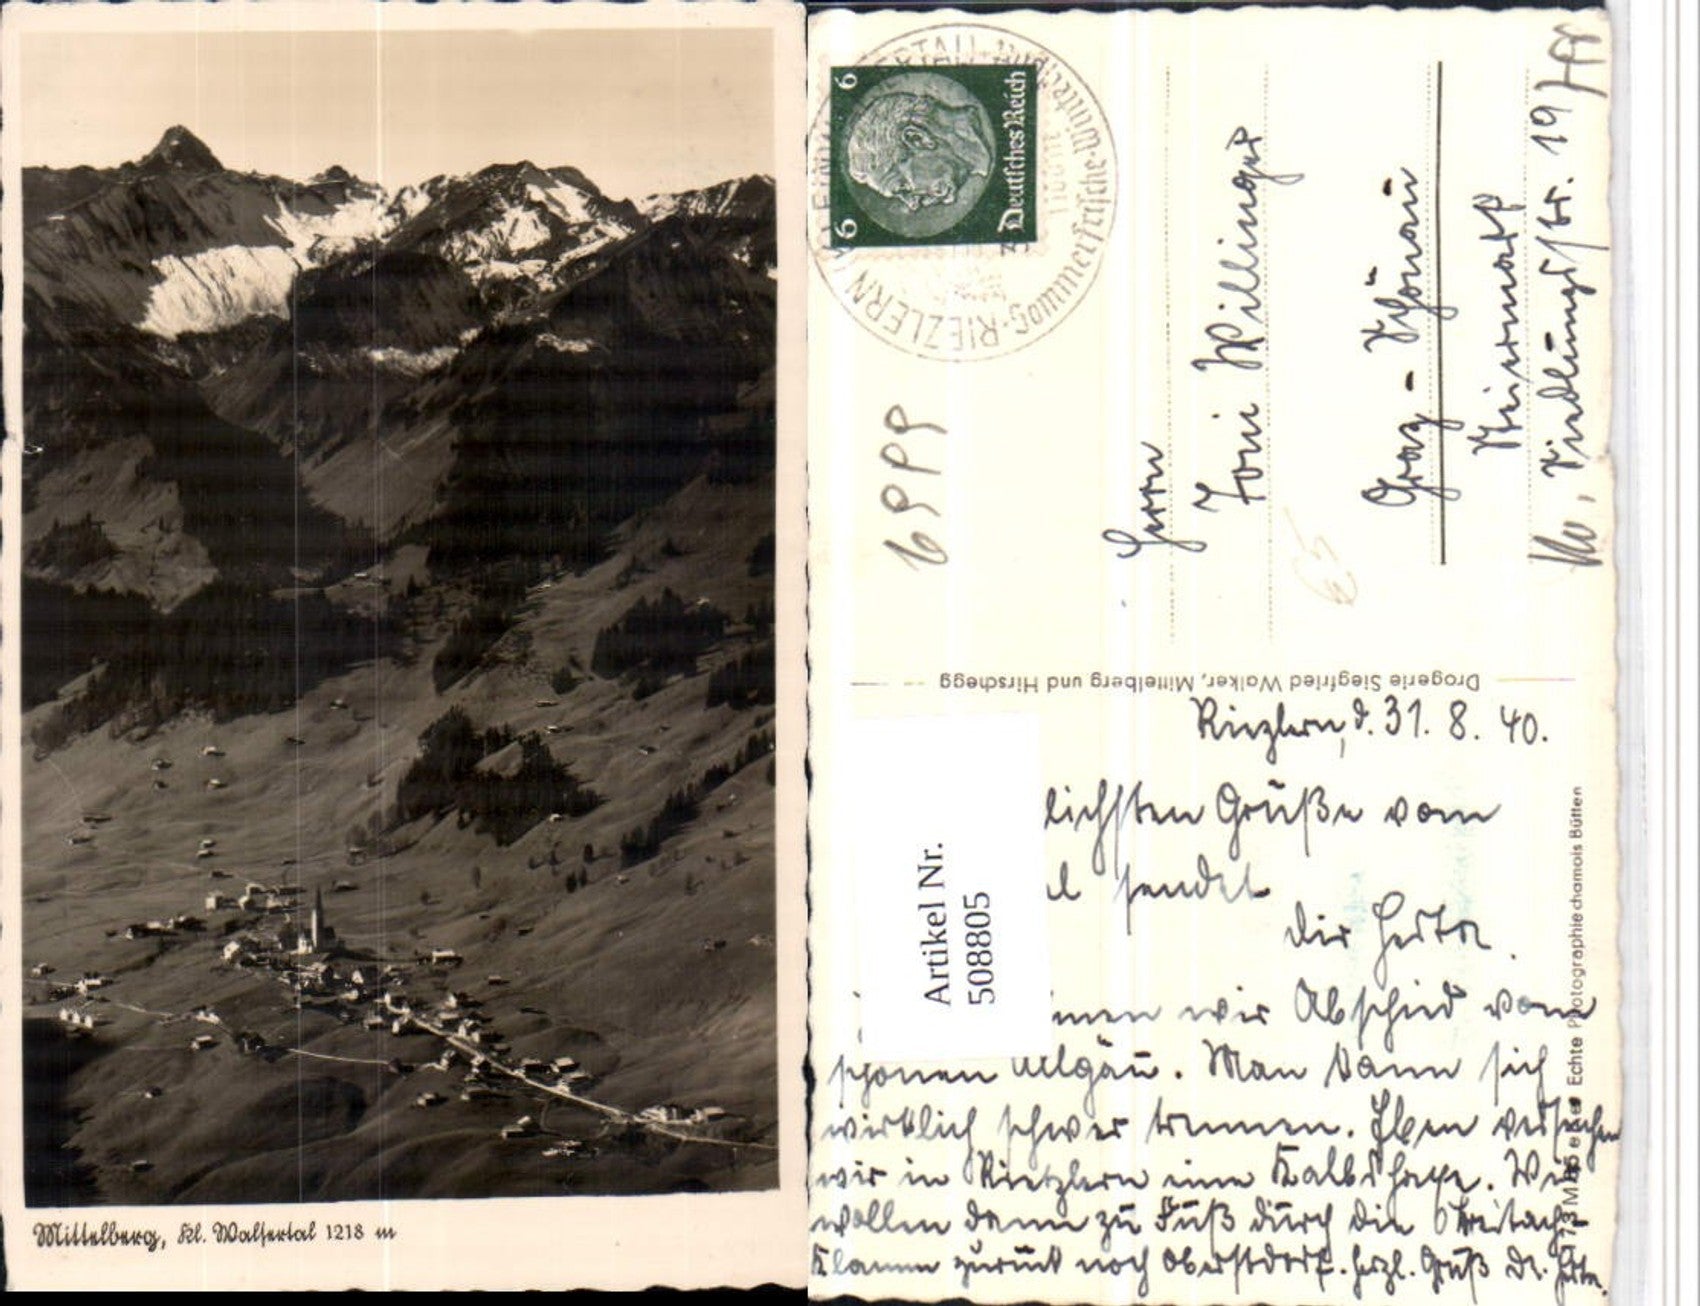 Mittelberg, Kl. Walsertal 1218 m
6 6
Deutsches Reich
RIEZLERN
Sommerfrische-Winter
Herrn
Toni Willinger
Graz - Schönau
Drogerie Siegfried Walker, Mittelberg und Hirschegg
Riezlern, d. 31. 8. 40.
lichsten Grüße vom
l sendet
Dir Herta.
Artikel Nr.
508805
men wir Abschied vom
schönen Allgäu. Man kann sich
wirklich schwer trennen. Eben
wir in Riezlern eine Kalbshaxe. Wir
wollen dann zu Fuß durch die Breitach-
Klamm zurück nach Oberstdorf. Herzl. Gruß Dr. Herta.
Echte Photographie chamois Bütten